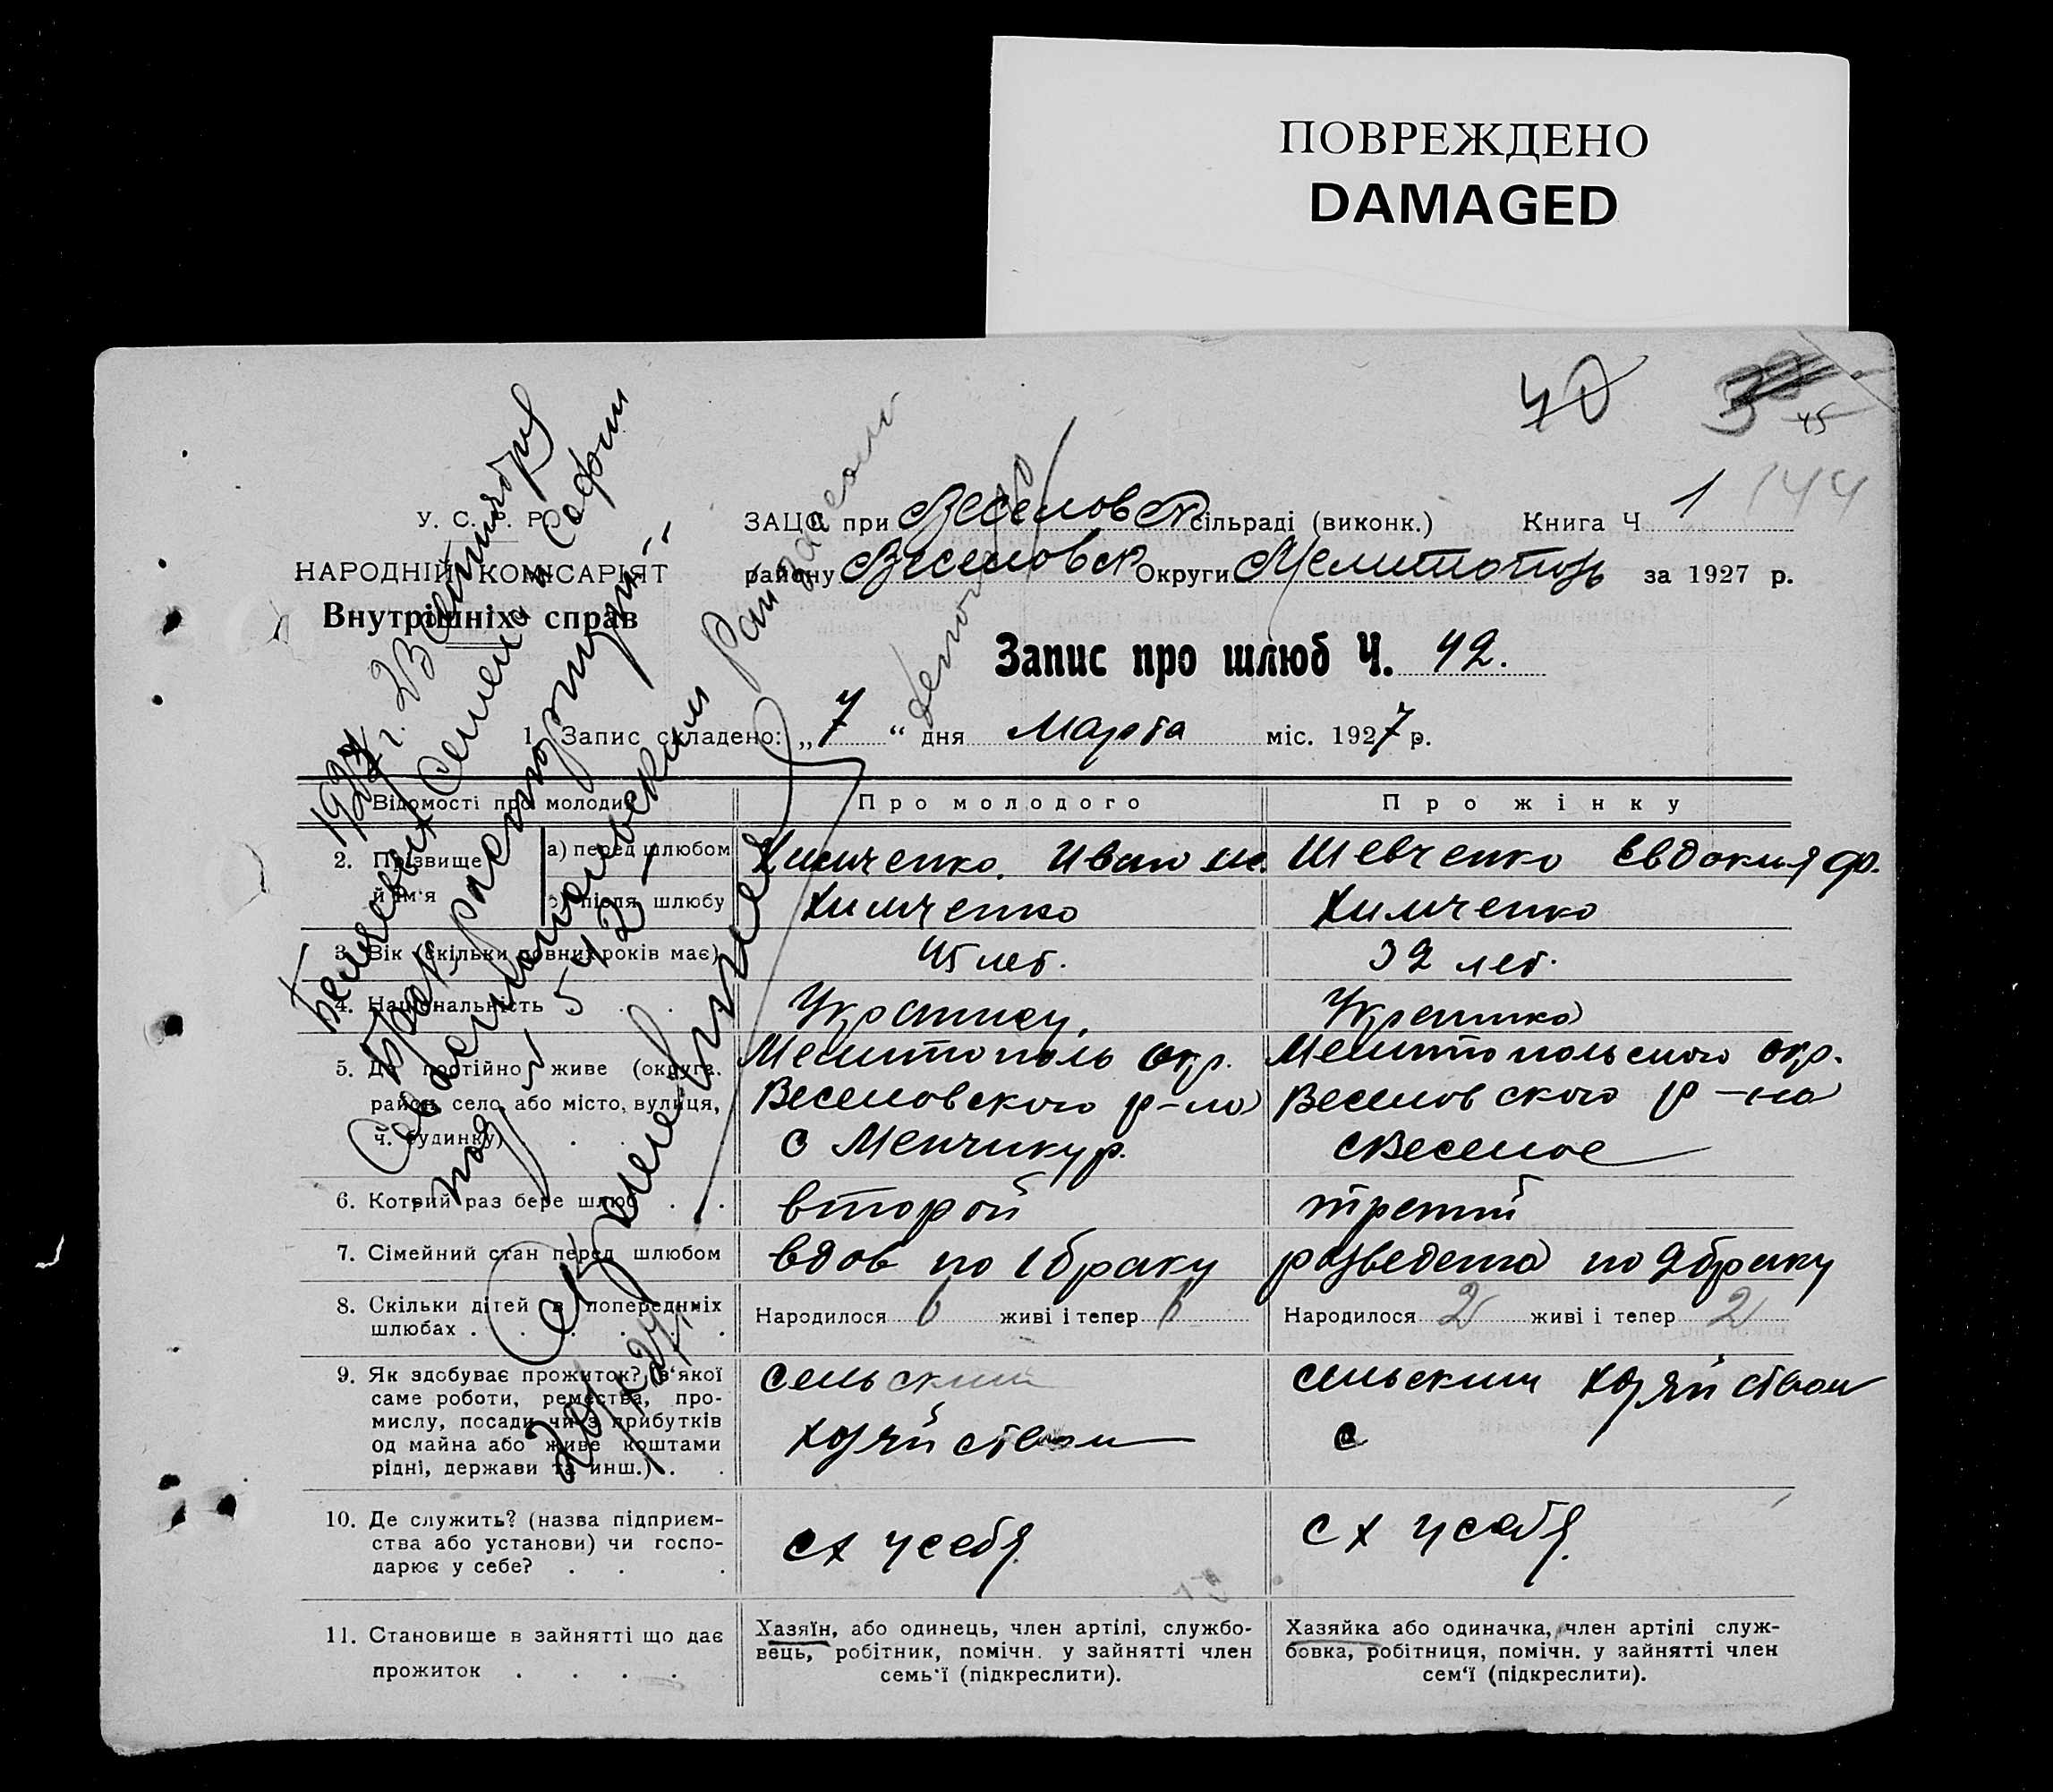 ПОВРЕЖДЕНО
DAMAGED
40
45
У. С. Р. Р.
НАРОДНІЙ КОМІСАРІЯТ
Внутрішніх справ
ЗАЦС при Веселовск сільраді (виконк.) Книга Ч 1 144
району Веселовск Округи Мелитополь за 1927 р.
Запис про шлюб Ч. 42.
1. Запис складено: „7“ дня Марта міс. 1927 р.
Відомості про молодих
Про молодого
Про жінку
2. Прізвище й ім'я
а) перед шлюбом
Химченко Иван
Шевченко Евдокия Ф.
б) після шлюбу
Химченко
Химченко
3. Вік (скільки повних років має)
45 лет.
32 лет.
4. Національність
Украинец
Украинка
5. Де постійно живе (округа, район, село або місто, вулиця, ч. будинку)
Мелитополь окр.
Веселовского р-на
с Менчикур.
Мелитопольского окр.
Веселовского р-на
с Веселое
6. Котрий раз бере шлюб
второй
третий
7. Сімейний стан перед шлюбом
вдов по 1 браку
разведена по 2 браку
8. Скільки дітей в попередніх шлюбах
Народилося живі і тепер
Народилося 2 живі і тепер 2
9. Як здобуває прожиток? (з якої
саме роботи, ремества, про-
мислу, посади чи з прибутків
од майна або живе коштами
рідні, держави та инш.)
сельским
хозяйством
сельским хозяйством
с
10. Де служить? (назва підприєм-
ства або установи) чи госпо-
дарює у себе?
сх у себя
сх у себя
11. Становище в зайнятті що дає
прожиток
Хазяїн, або одинець, член артілі, службо-
вець, робітник, помічн. у зайнятті член
семь'ї (підкреслити).
Хазяйка або одиначка, член артілі служ-
бовка, робітниця, помічн. у зайнятті член
сем'ї (підкреслити).
1927 г. 23 Сентября
Семена и Софии
брак расторгнут
под № 542